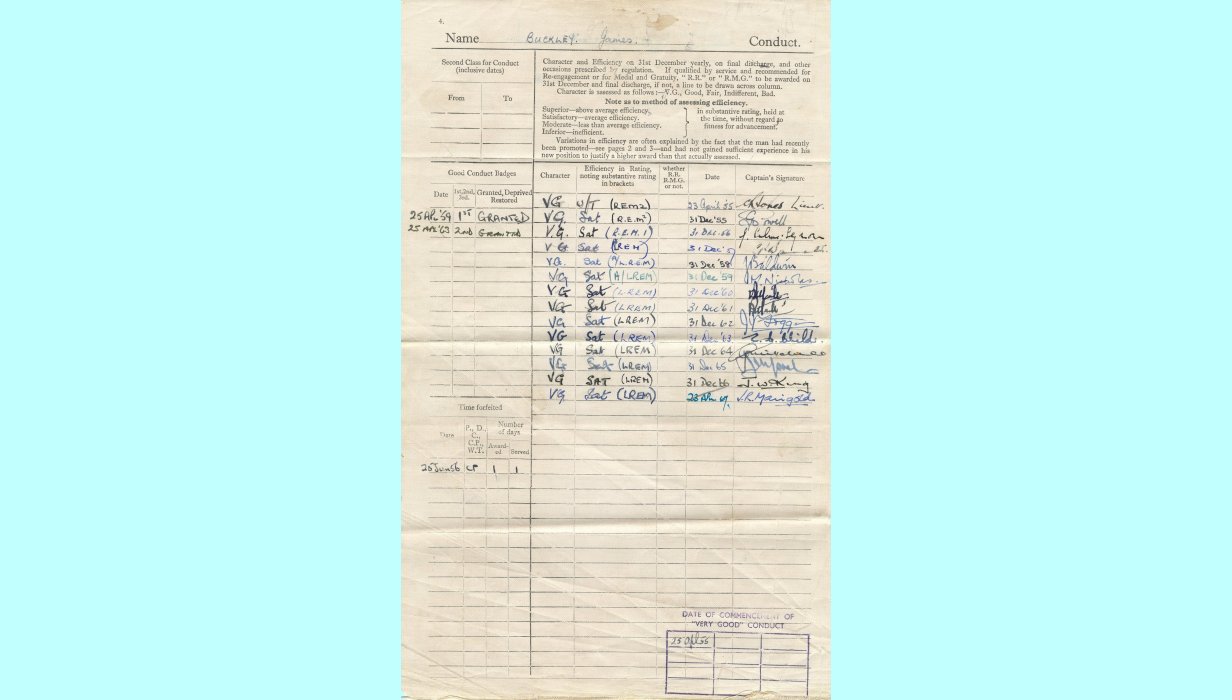 4.
Name BUCKLEY. James. Conduct.
Second Class for Conduct
(inclusive dates)
From To
Character and Efficiency on 31st December yearly, on final discharge, and other
occasions prescribed by regulation. If qualified by service and recommended for
Re-engagement or for Medal and Gratuity, "R.R." or "R.M.G." to be awarded on
31st December and final discharge, if not, a line to be drawn across column.
Character is assessed as follows:—V.G., Good, Fair, Indifferent, Bad.
Note as to method of assessing efficiency.
Superior—above average efficiency.
Satisfactory—average efficiency.
Moderate—less than average efficiency.
Inferior—inefficient.
in substantive rating, held at
the time, without regard to
fitness for advancement.
Variations in efficiency are often explained by the fact that the man had recently
been promoted—see pages 2 and 3—and had not gained sufficient experience in his
new position to justify a higher award than that actually assessed.
Good Conduct Badges
Date 1st, 2nd, 3rd. Granted, Deprived Restored
25 APL '59 1ST GRANTED
25 APL '63 2nd GRANTED
Character Efficiency in Rating, noting substantive rating in brackets whether R.R. R.M.G. or not. Date Captain's Signature
VG U/T (REM2) 23 April '55
VG. Sat (R.E.M²) 31 Dec '55
V.G. Sat (R.E.M.1) 31 Dec '56
VG Sat (REM) 31 Dec
VG. Sat (LREM) 31 Dec '58 Baldwin
VG Sat (A/LREM) 31 Dec '59 Nicholas
VG Sat (LREM) 31 Dec '60
VG Sat (LREM) 31 Dec '61
VG Sat (LREM) 31 Dec '62
VG Sat (LREM) 31 Dec '63
VG Sat (LREM) 31 Dec '64
VG Sat (LREM) 31 Dec '65
VG SAT (LREM) 31 Dec '66 J. W. King
VG Sat (LREM) 23 APL J.R. Marigold
Time forfeited
Date P., D., C., C.P., W.T. Number of days
Awarded Served
1 1
DATE OF COMMENCEMENT OF
"VERY GOOD" CONDUCT